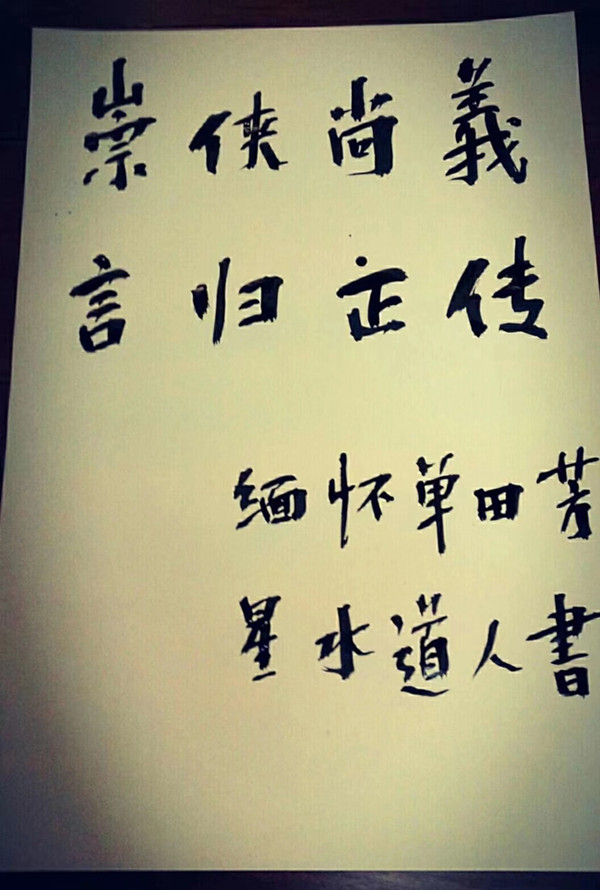 崇侠尚義
言归正传
缅怀单田芳
星水道人書